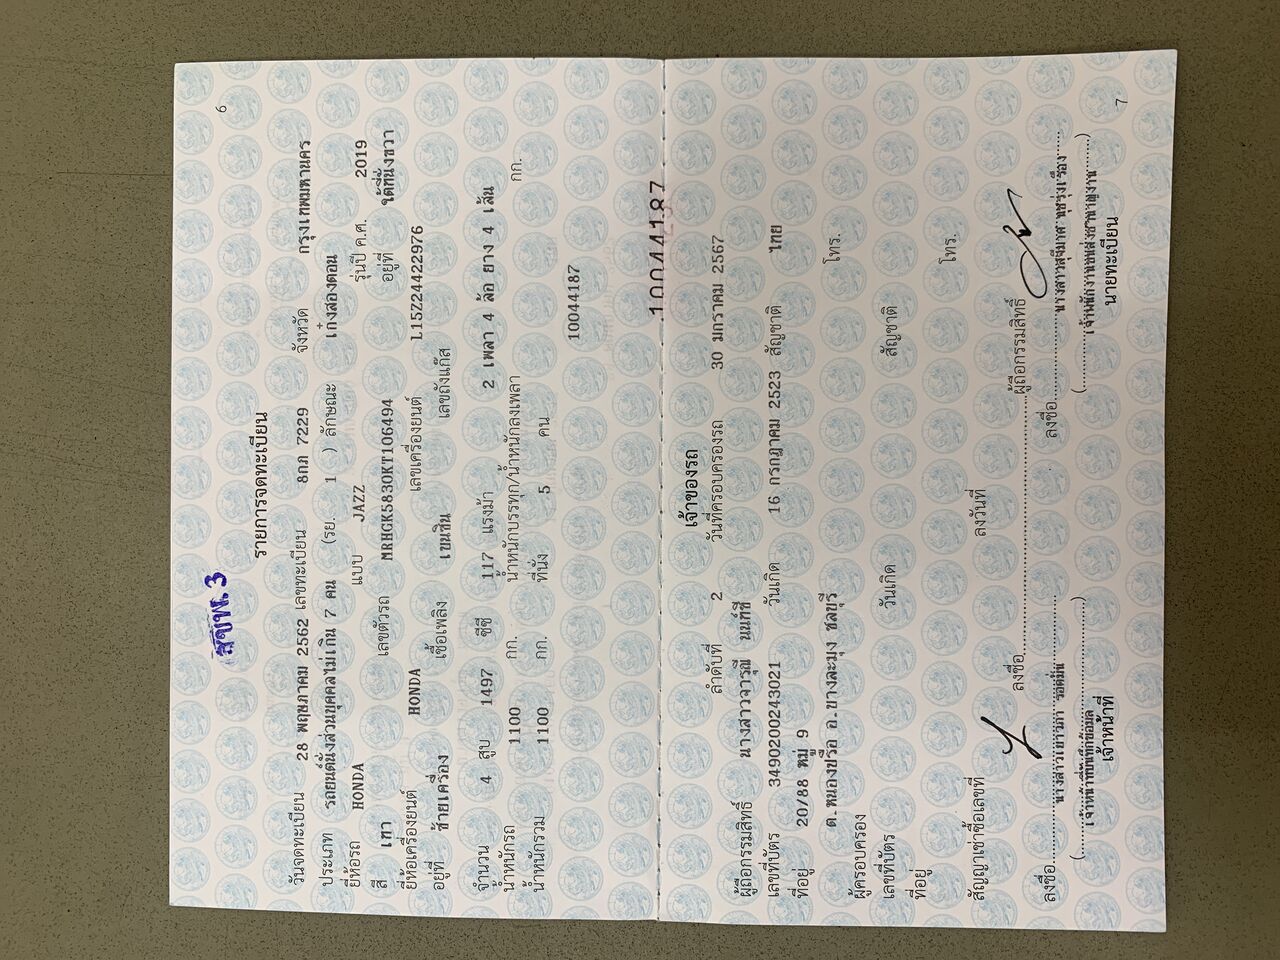 6
สขพ.3
รายการจดทะเบียน
วันจดทะเบียน 28 พฤษภาคม 2562 เลขทะเบียน 8กภ 7229 จังหวัด กรุงเทพมหานคร
ประเภท รถยนต์นั่งส่วนบุคคลไม่เกิน 7 คน (รย. 1 ) ลักษณะ เก๋งสองตอน
ยี่ห้อรถ HONDA แบบ JAZZ รุ่นปี ค.ศ. 2019
สี เทา เลขตัวรถ MRHGK5830KT106494 อยู่ที่ ใต้ที่นั่งขวา
ยี่ห้อเครื่องยนต์ HONDA เลขเครื่องยนต์ L15Z24422976
อยู่ที่ ซ้ายเครื่อง เชื้อเพลิง เบนซิน เลขถังแก๊ส
จำนวน 4 สูบ 1497 ซีซี 117 แรงม้า 2 เพลา 4 ล้อ ยาง 4 เส้น
น้ำหนักรถ 1100 กก. น้ำหนักบรรทุก/น้ำหนักลงเพลา กก.
น้ำหนักรวม 1100 กก. ที่นั่ง 5 คน
10044187
10044187
เจ้าของรถ
ลำดับที่ 2 วันที่ครอบครองรถ 30 มกราคม 2567
ผู้ถือกรรมสิทธิ์ นางสาวจารุณี นนท์ชี
เลขที่บัตร 3490200243021 วันเกิด 16 กรกฎาคม 2523 สัญชาติ ไทย
ที่อยู่ 20/88 หมู่ 9 โทร.
ต.หนองปรือ อ.บางละมุง ชลบุรี
ผู้ครอบครอง
เลขที่บัตร วันเกิด สัญชาติ
ที่อยู่ โทร.
สัญญาเช่าซื้อเลขที่ ลงวันที่
ลงชื่อ ผู้ถือกรรมสิทธิ์
ลงชื่อ ลงชื่อ
เจ้าหน้าที่ นายทะเบียน
7